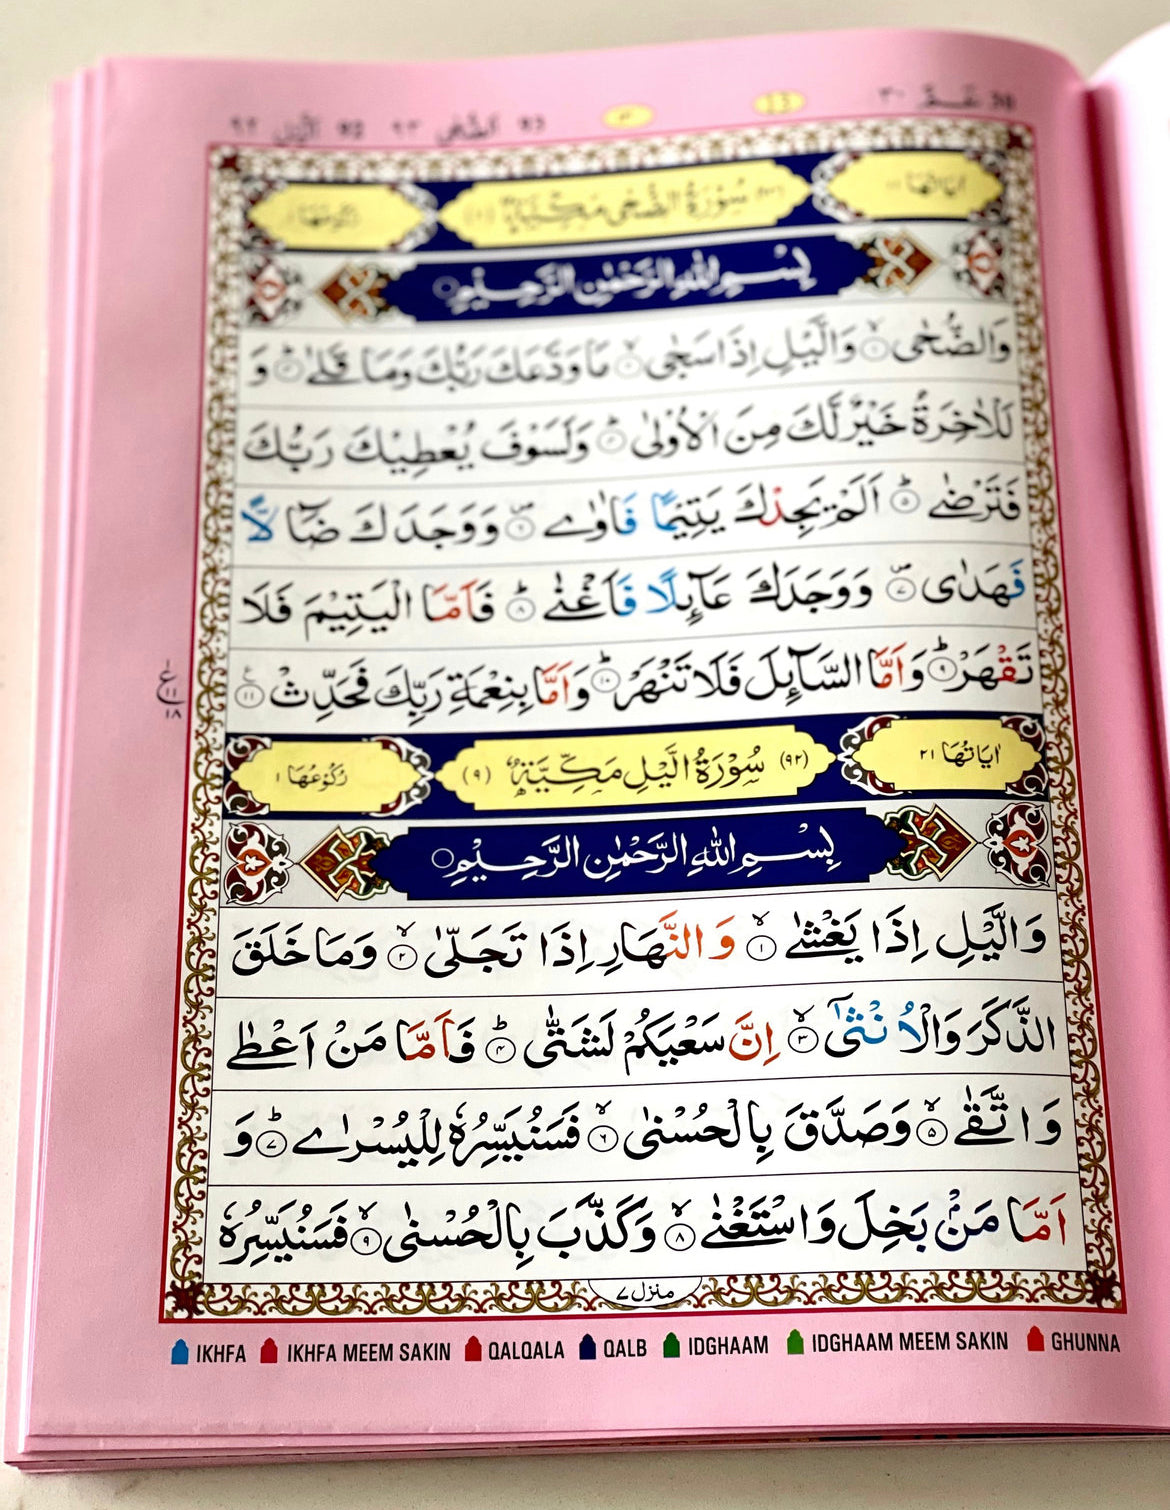 30 عَمَّ ٣٠
93 اَلضُّحٰى ٩٣ 92 اَلَّيْل ٩٢
اٰيَاتُهَا ١١ (٩٣) سُوْرَةُ الضُّحٰى مَكِّيَّةٌ (١١) رُكُوْعُهَا ١
بِسْمِ اللّٰهِ الرَّحْمٰنِ الرَّحِيْمِ ۝
وَالضُّحٰى ۙ‏﴿۱﴾ وَالَّيْلِ اِذَا سَجٰى ۙ‏﴿۲﴾ مَا وَدَّعَكَ رَبُّكَ وَمَا قَلٰى ؕ‏﴿۳﴾ وَ
لَلْاٰخِرَةُ خَيْرٌ لَّكَ مِنَ الْاُوْلٰى ؕ‏﴿۴﴾ وَلَسَوْفَ يُعْطِيْكَ رَبُّكَ
فَتَرْضٰى ؕ‏﴿۵﴾ اَلَمْ يَجِدْكَ يَتِيْمًا فَاٰوٰے ۪‏﴿۶﴾ وَوَجَدَكَ ضَآلًّا
فَهَدٰى ۪‏﴿۷﴾ وَوَجَدَكَ عَآىِٕلًا فَاَغْنٰى ؕ‏﴿۸﴾ فَاَمَّا الْيَتِيْمَ فَلَا
تَقْهَرْ ؕ‏﴿۹﴾ وَاَمَّا السَّآىِٕلَ فَلَا تَنْهَرْ ؕ‏﴿۱۰﴾ وَاَمَّا بِنِعْمَةِ رَبِّكَ فَحَدِّثْ ﴿۱۱﴾
ع
١١
١٨
اٰيَاتُهَا ٢١ (٩٢) سُوْرَةُ الَّيْلِ مَكِّيَّةٌ (٩) رُكُوْعُهَا ١
بِسْمِ اللّٰهِ الرَّحْمٰنِ الرَّحِيْمِ ۝
وَالَّيْلِ اِذَا يَغْشٰى ۙ‏﴿۱﴾ وَالنَّهَارِ اِذَا تَجَلّٰى ۙ‏﴿۲﴾ وَمَا خَلَقَ
الذَّكَرَ وَالْاُنْثٰٓى ۙ‏﴿۳﴾ اِنَّ سَعْيَكُمْ لَشَتّٰى ؕ‏﴿۴﴾ فَاَمَّا مَنْ اَعْطٰى
وَاتَّقٰى ۙ‏﴿۵﴾ وَصَدَّقَ بِالْحُسْنٰى ۙ‏﴿۶﴾ فَسَنُيَسِّرُهٗ لِلْيُسْرٰے ؕ‏﴿۷﴾ وَ
اَمَّا مَنْۢ بَخِلَ وَاسْتَغْنٰى ۙ‏﴿۸﴾ وَكَذَّبَ بِالْحُسْنٰى ۙ‏﴿۹﴾ فَسَنُيَسِّرُهٗ
منزل ٧
IKHFA IKHFA MEEM SAKIN QALQALA QALB IDGHAAM IDGHAAM MEEM SAKIN GHUNNA